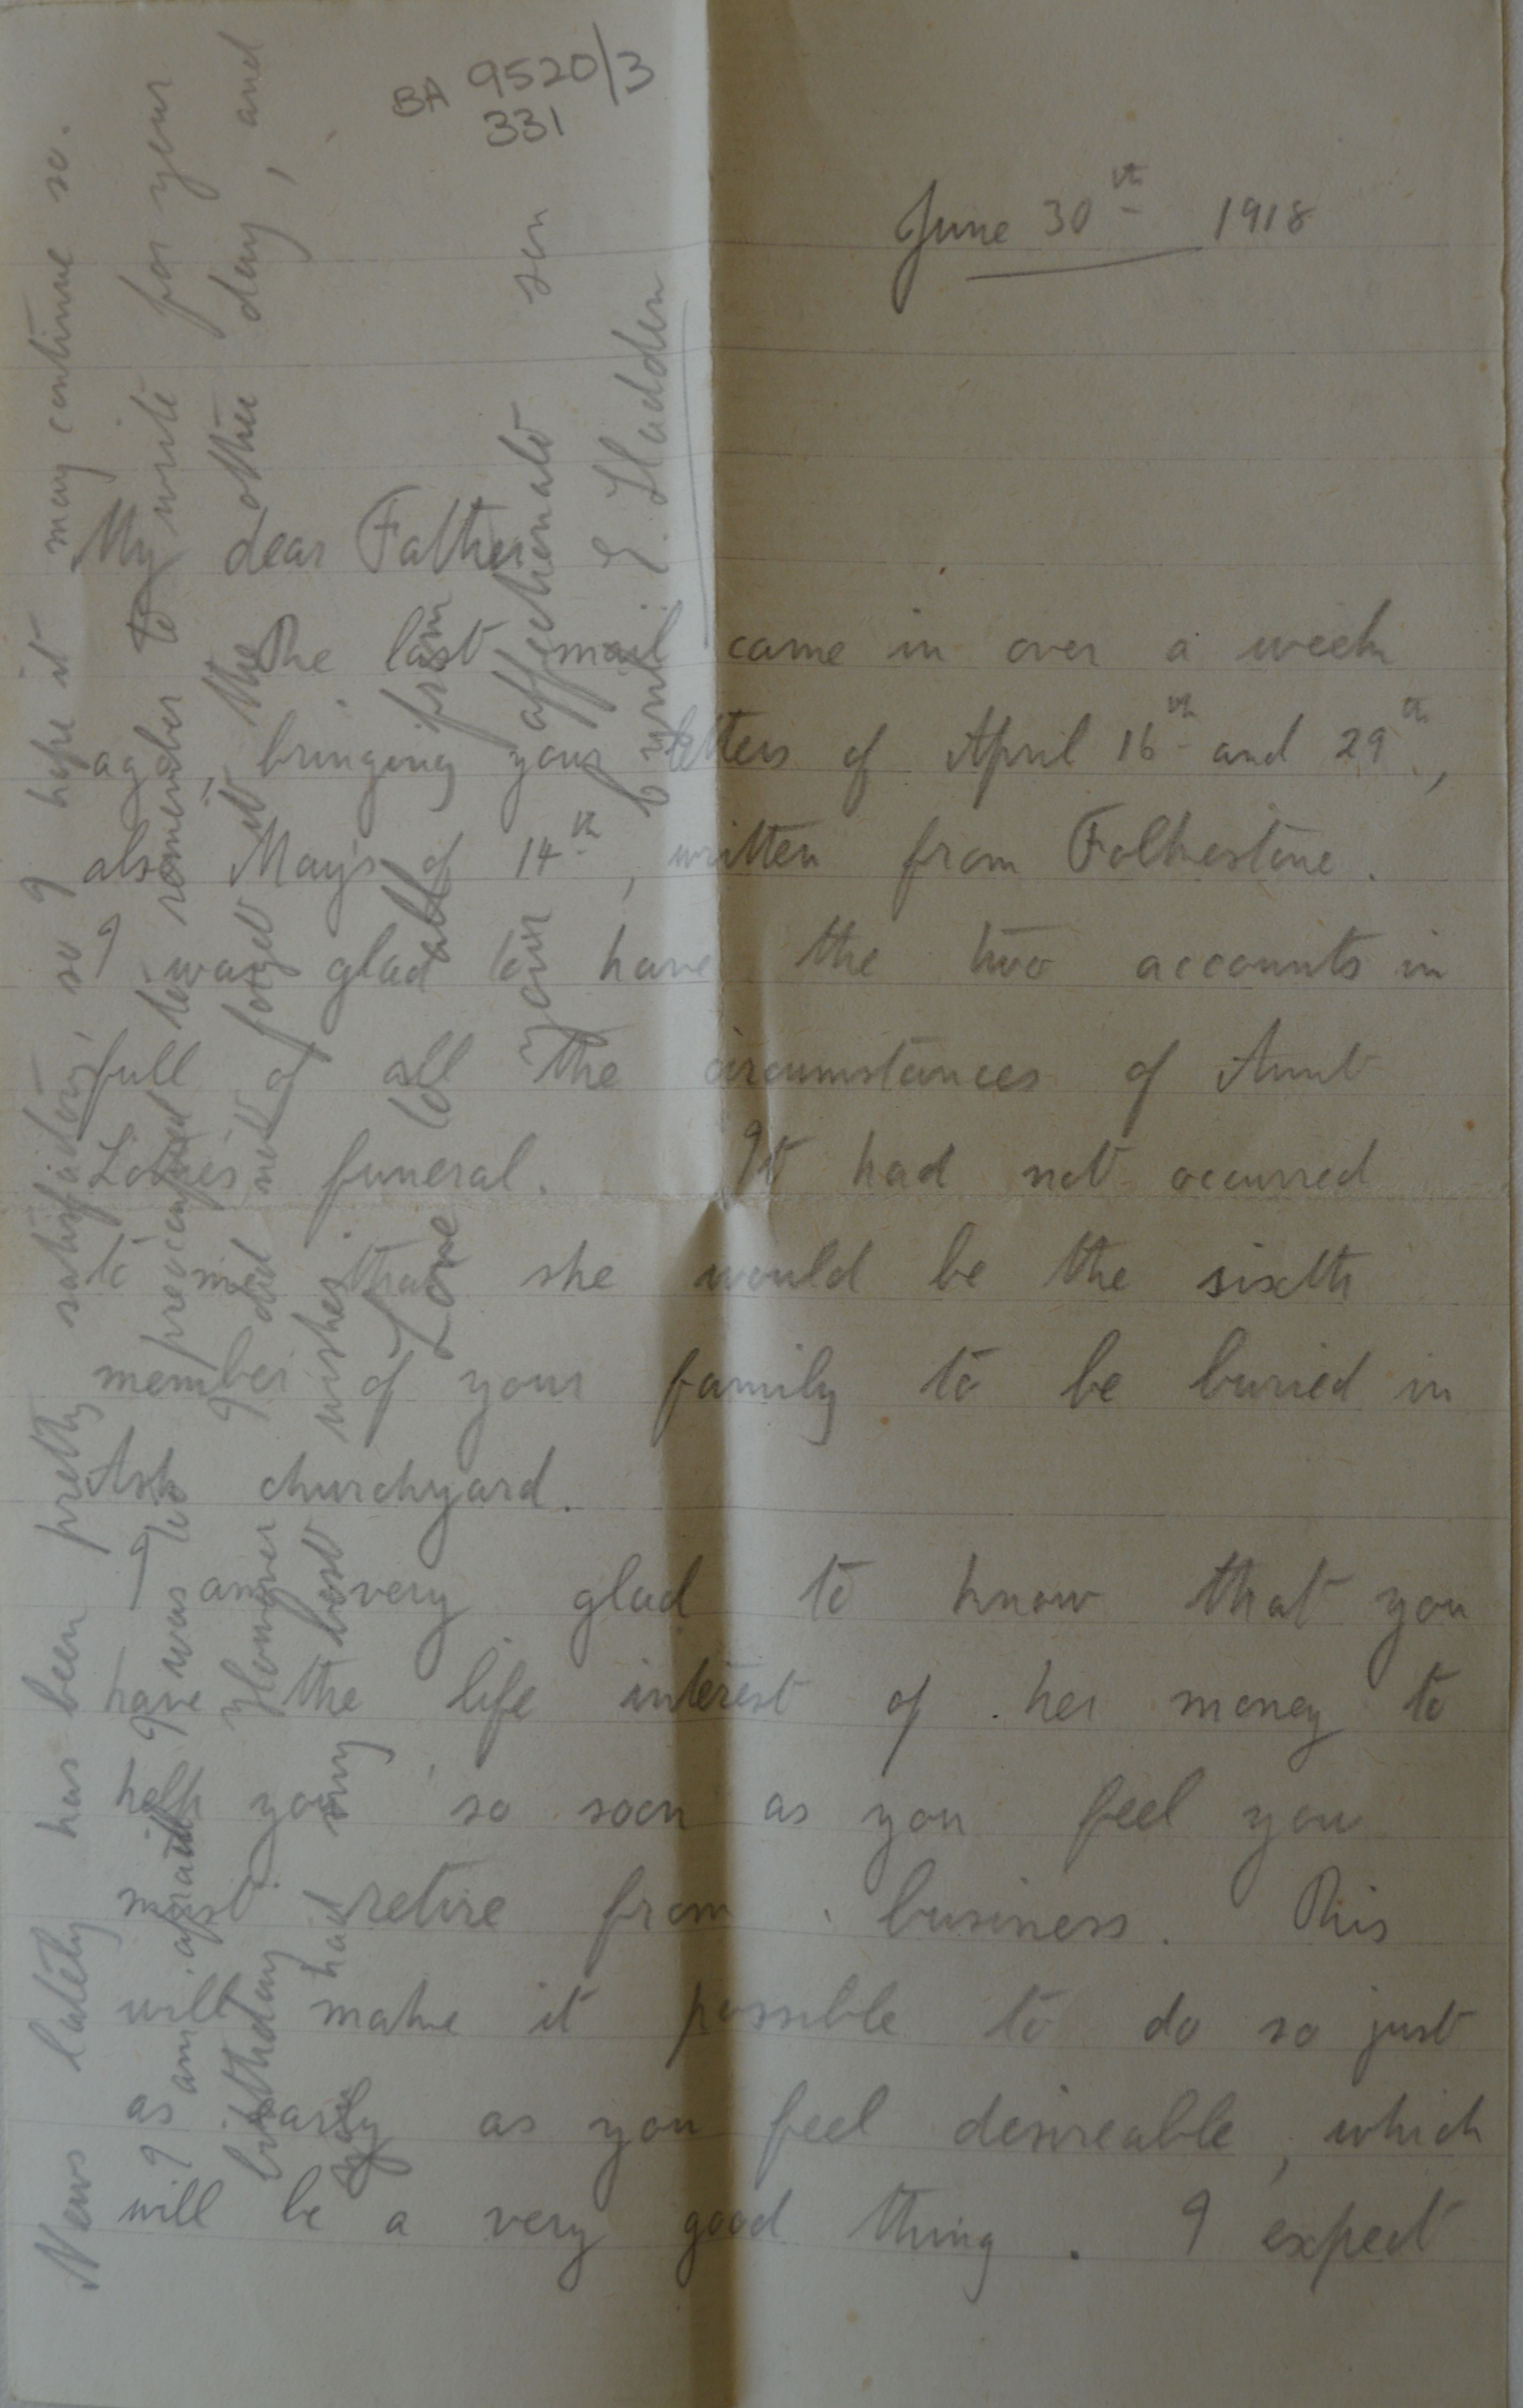 BA 9520/3
331
June 30th 1918
My dear Father
The last mail came in over a week
ago, bringing your letters of April 16th and 29th,
also May's of 14th, written from Folkestone.
I was glad to have the two accounts in
full of all the circumstances of Aunt
funeral. It had not occurred
to me that she would be the sixth
member of your family to be buried in
Ash churchyard.
I am very glad to know that you
have the life interest of her money to
help you, so soon as you feel you
must retire from business. This
will make it possible to do so just
as early as you feel desireable, which
will be a very good thing. I expect
News lately has been pretty satisfactory, so I hope it may continue so.
I am afraid I was too preoccupied to remember to write for your
birthday however I did not forget it the other day, and
you had my best wishes
Love to all from
your affectionate son
E. Hadden